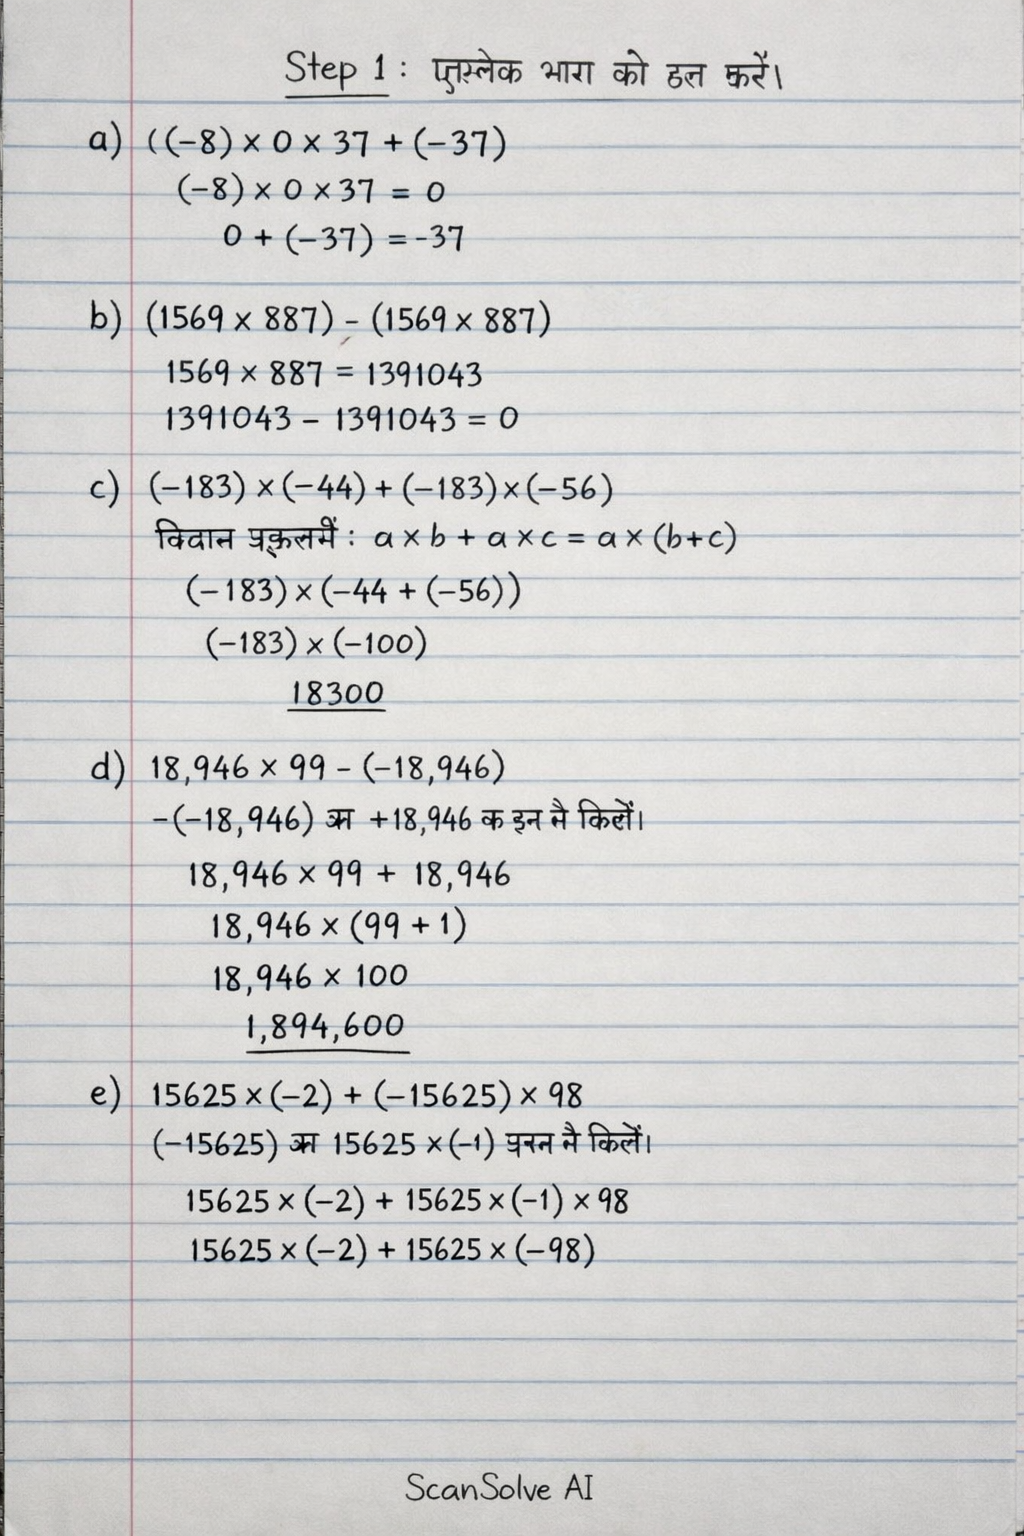 Step 1: को करें।
a) ((-8) × 0 × 37 + (-37)
(-8) × 0 × 37 = 0
0 + (-37) = -37
b) (1569 × 887) - (1569 × 887)
1569 × 887 = 1391043
1391043 - 1391043 = 0
c) (-183) × (-44) + (-183) × (-56)
: a × b + a × c = a × (b+c)
(-183) × (-44 + (-56))
(-183) × (-100)
18300
d) 18,946 × 99 - (-18,946)
-(-18,946) +18,946 क इन नै किलें।
18,946 × 99 + 18,946
18,946 × (99 + 1)
18,946 × 100
1,894,600
e) 15625 × (-2) + (-15625) × 98
(-15625) 15625 × (-1) नै किलें।
15625 × (-2) + 15625 × (-1) × 98
15625 × (-2) + 15625 × (-98)
ScanSolve AI